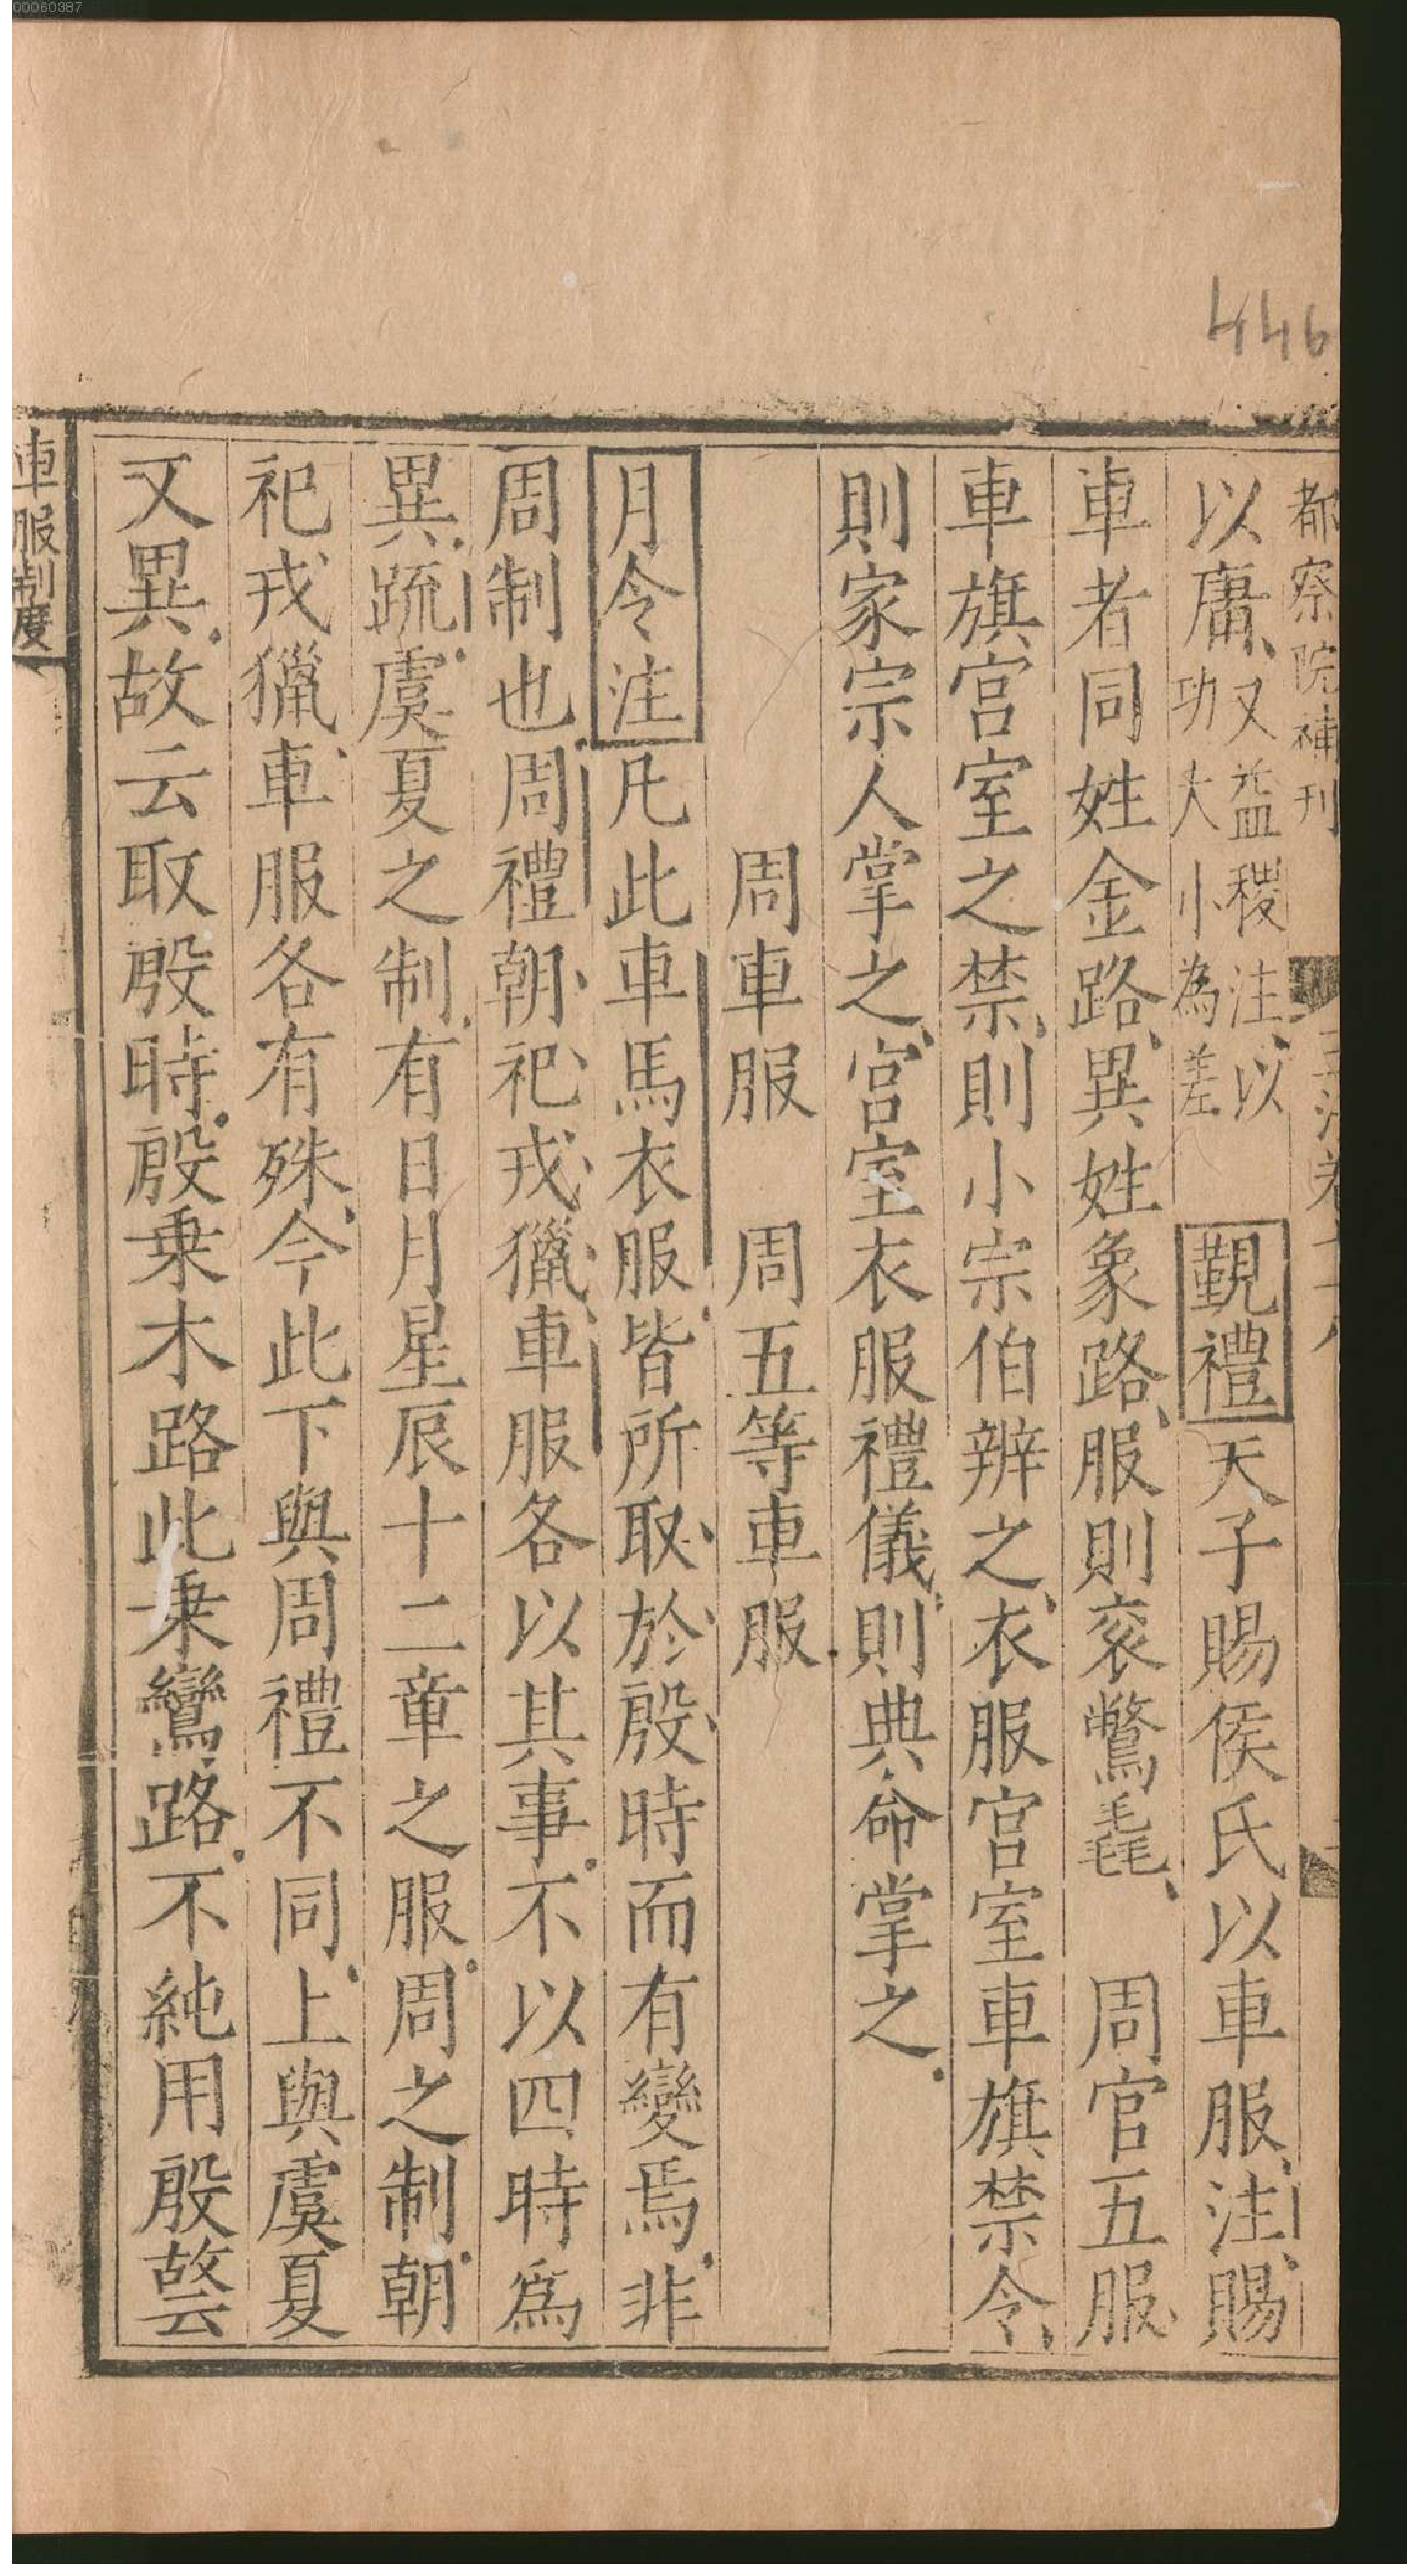 00060387
446
都察院補刊
以庸又益稷注以功大小為差 覲禮天子賜侯氏以車服注賜
車者同姓金路異姓象路服則衮鷩毳 周官五服
車旗宮室之禁則小宗伯辨之衣服宮室車旗禁令
則家宗人掌之宮室衣服禮儀則典命掌之
周車服 周五等車服
月令注凡此車馬衣服皆所取於殷時而有變焉非
周制也周禮朝祀戎獵車服各以其事不以四時爲
異疏虞夏之制有日月星辰十二章之服周之制朝
祀戎獵車服各有殊今此下與周禮不同上與虞夏
又異故云取殷時殷乗木路此乗鸞路不純用殷故云
車服制度